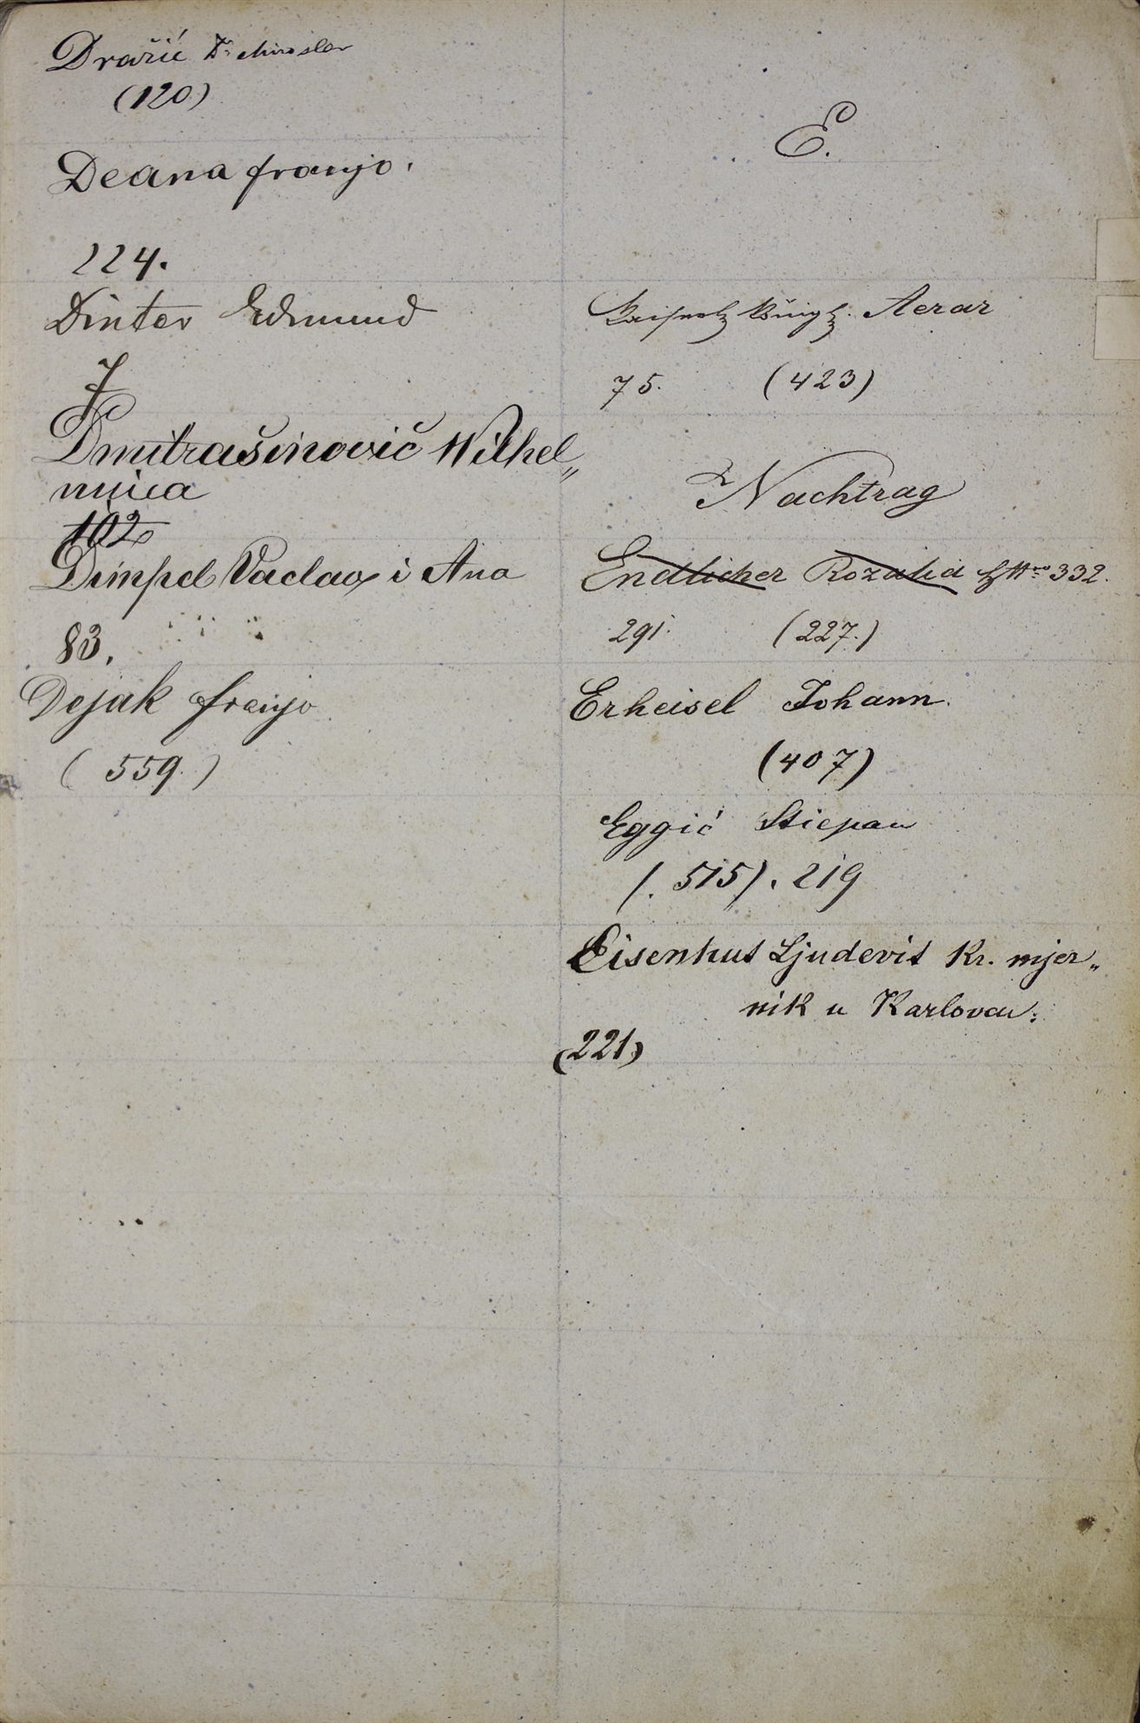 Dražić Dr Miroslav
(120)
Deana franjo.
224.
Dinter Edmund
7
Dmitrašinović Wilhel„
mica
102
Dimpel Vaclav i Ana
83.
Dejak franjo
(559.)
E.
Königl. Aerar
75. (423)
Nachtrag
Endlicher Rozalia 332.
291. (227.)
Erheisel Johann.
(407)
Eggić Stiepan
(.515). 219
Eisenhut Ljudevit Kr. mjer„
nik u Karlovcu.
(221)